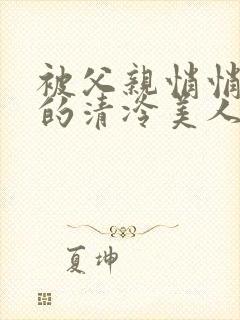 被父親悄悄
的清冷美人
夏坤